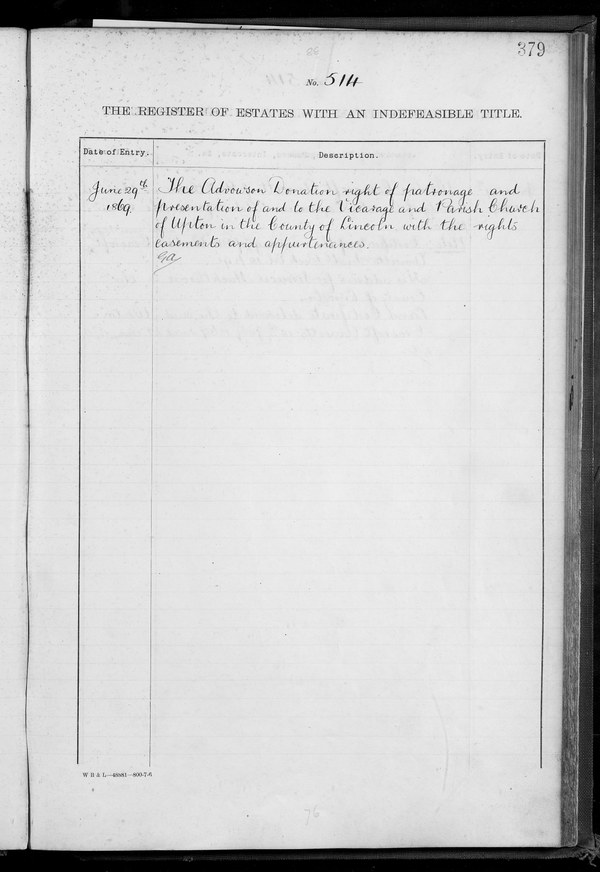 379
No. 514
THE REGISTER OF ESTATES WITH AN INDEFEASIBLE TITLE.
Date of Entry.
Description.
June 29th
1869
The Advowson Donation right of patronage and
presentation of and to the Vicarage and Parish Church
of Upton in the County of Lincoln with the rights
easements and appurtenances.
W B & L—49581—800-7-6
76